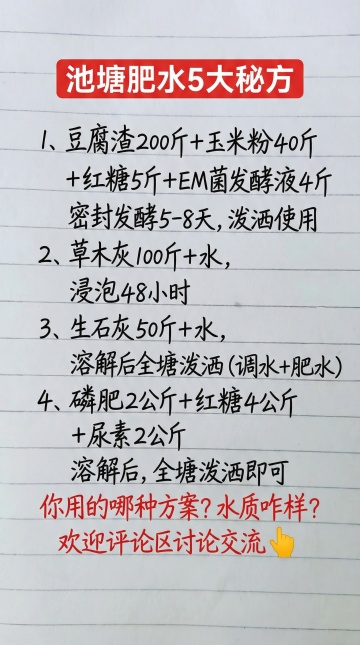 池塘肥水5大秘方
1、豆腐渣200斤+玉米粉40斤
+红糖5斤+EM菌发酵液4斤
密封发酵5-8天,泼洒使用
2、草木灰100斤+水,
浸泡48小时
3、生石灰50斤+水,
溶解后全塘泼洒(调水+肥水)
4、磷肥2公斤+红糖4公斤
+尿素2公斤
溶解后,全塘泼洒即可
你用的哪种方案?水质咋样?
欢迎评论区讨论交流👆